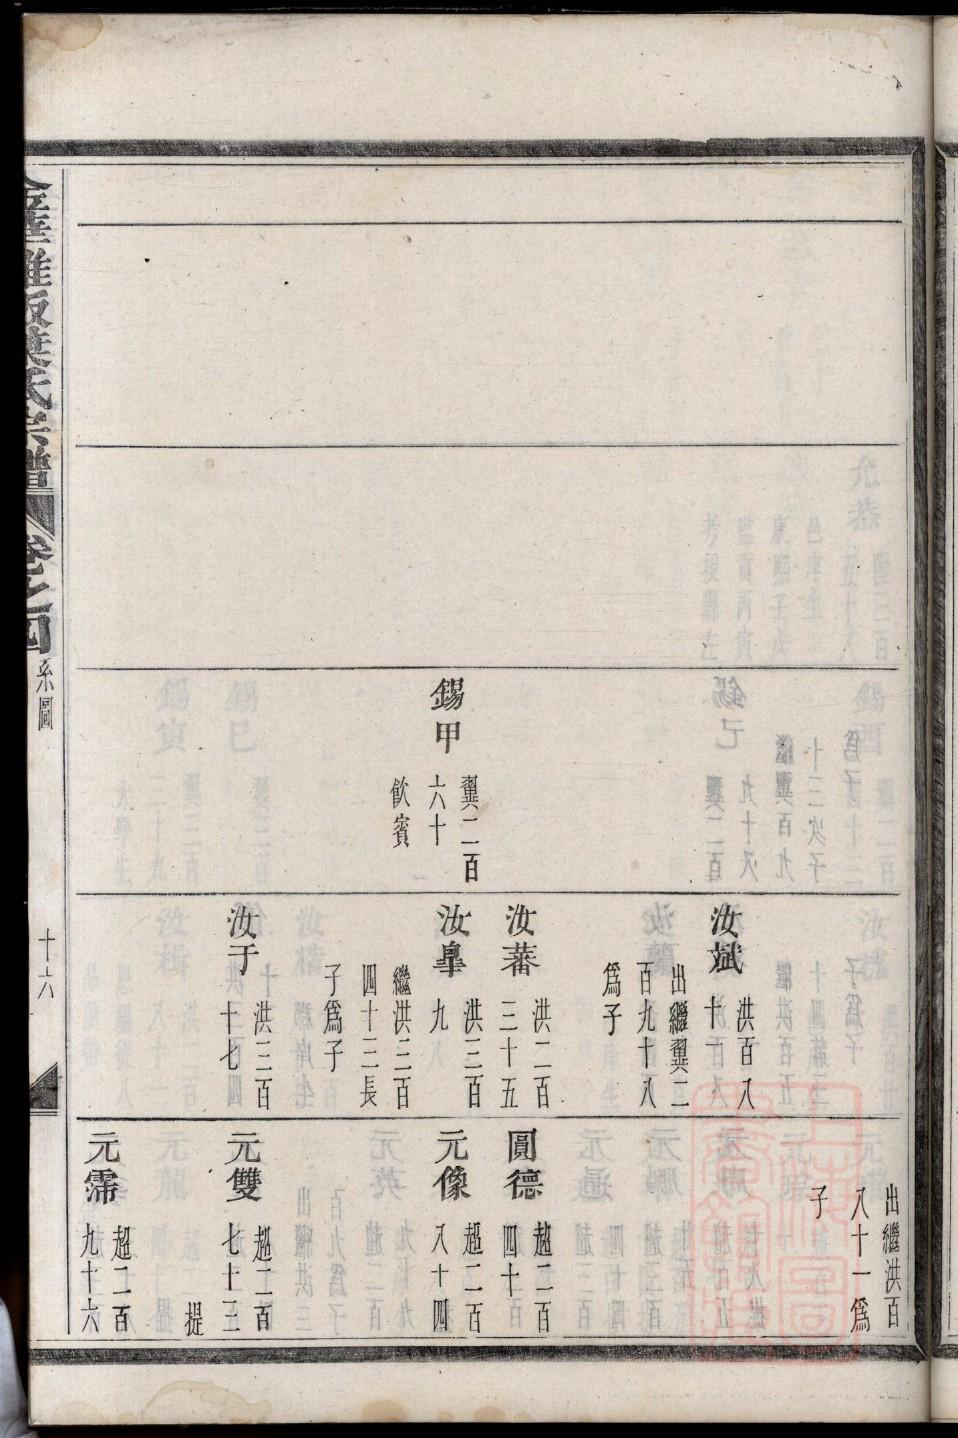 錫甲
翼二百
六十
飲賓
汝斌
洪百八
十一
出繼翼二
百九十八
爲子
汝蕃
洪二百
三十五
汝皐
洪三百
九
繼洪三百
四十三長
子爲子
汝于
洪三百
十七
出繼洪百
八十一爲
子
圓德
趙二百
四十
元像
趙二百
八十四
元雙
趙二百
七十三
提
元霈
趙二百
九十六
氏宗譜
卷之四
系圖
十六